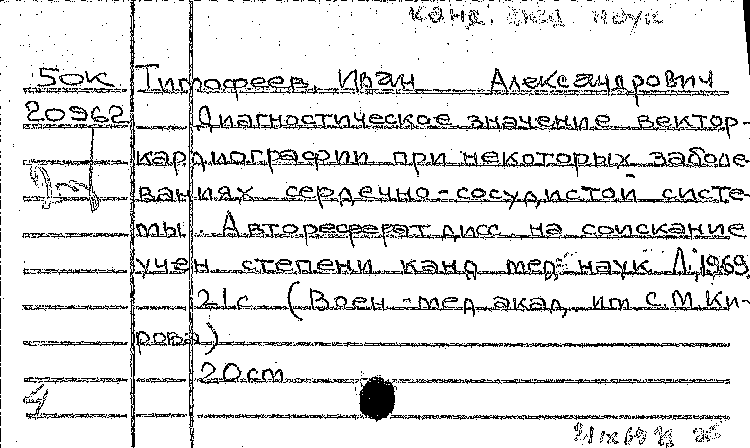 канд. мед наук
50к Тимофеев, Иван Александрович
20962 Диагностическое значение вектор-
кардиографии при некоторых заболе
ваниях сердечно-сосудистой систе-
мы. Автореферат дисс. на соискание
учен степени канд мед. наук Л., 1969.
21с (Воен-мед акад, им С.М.Ки-
рова)
20cm
4